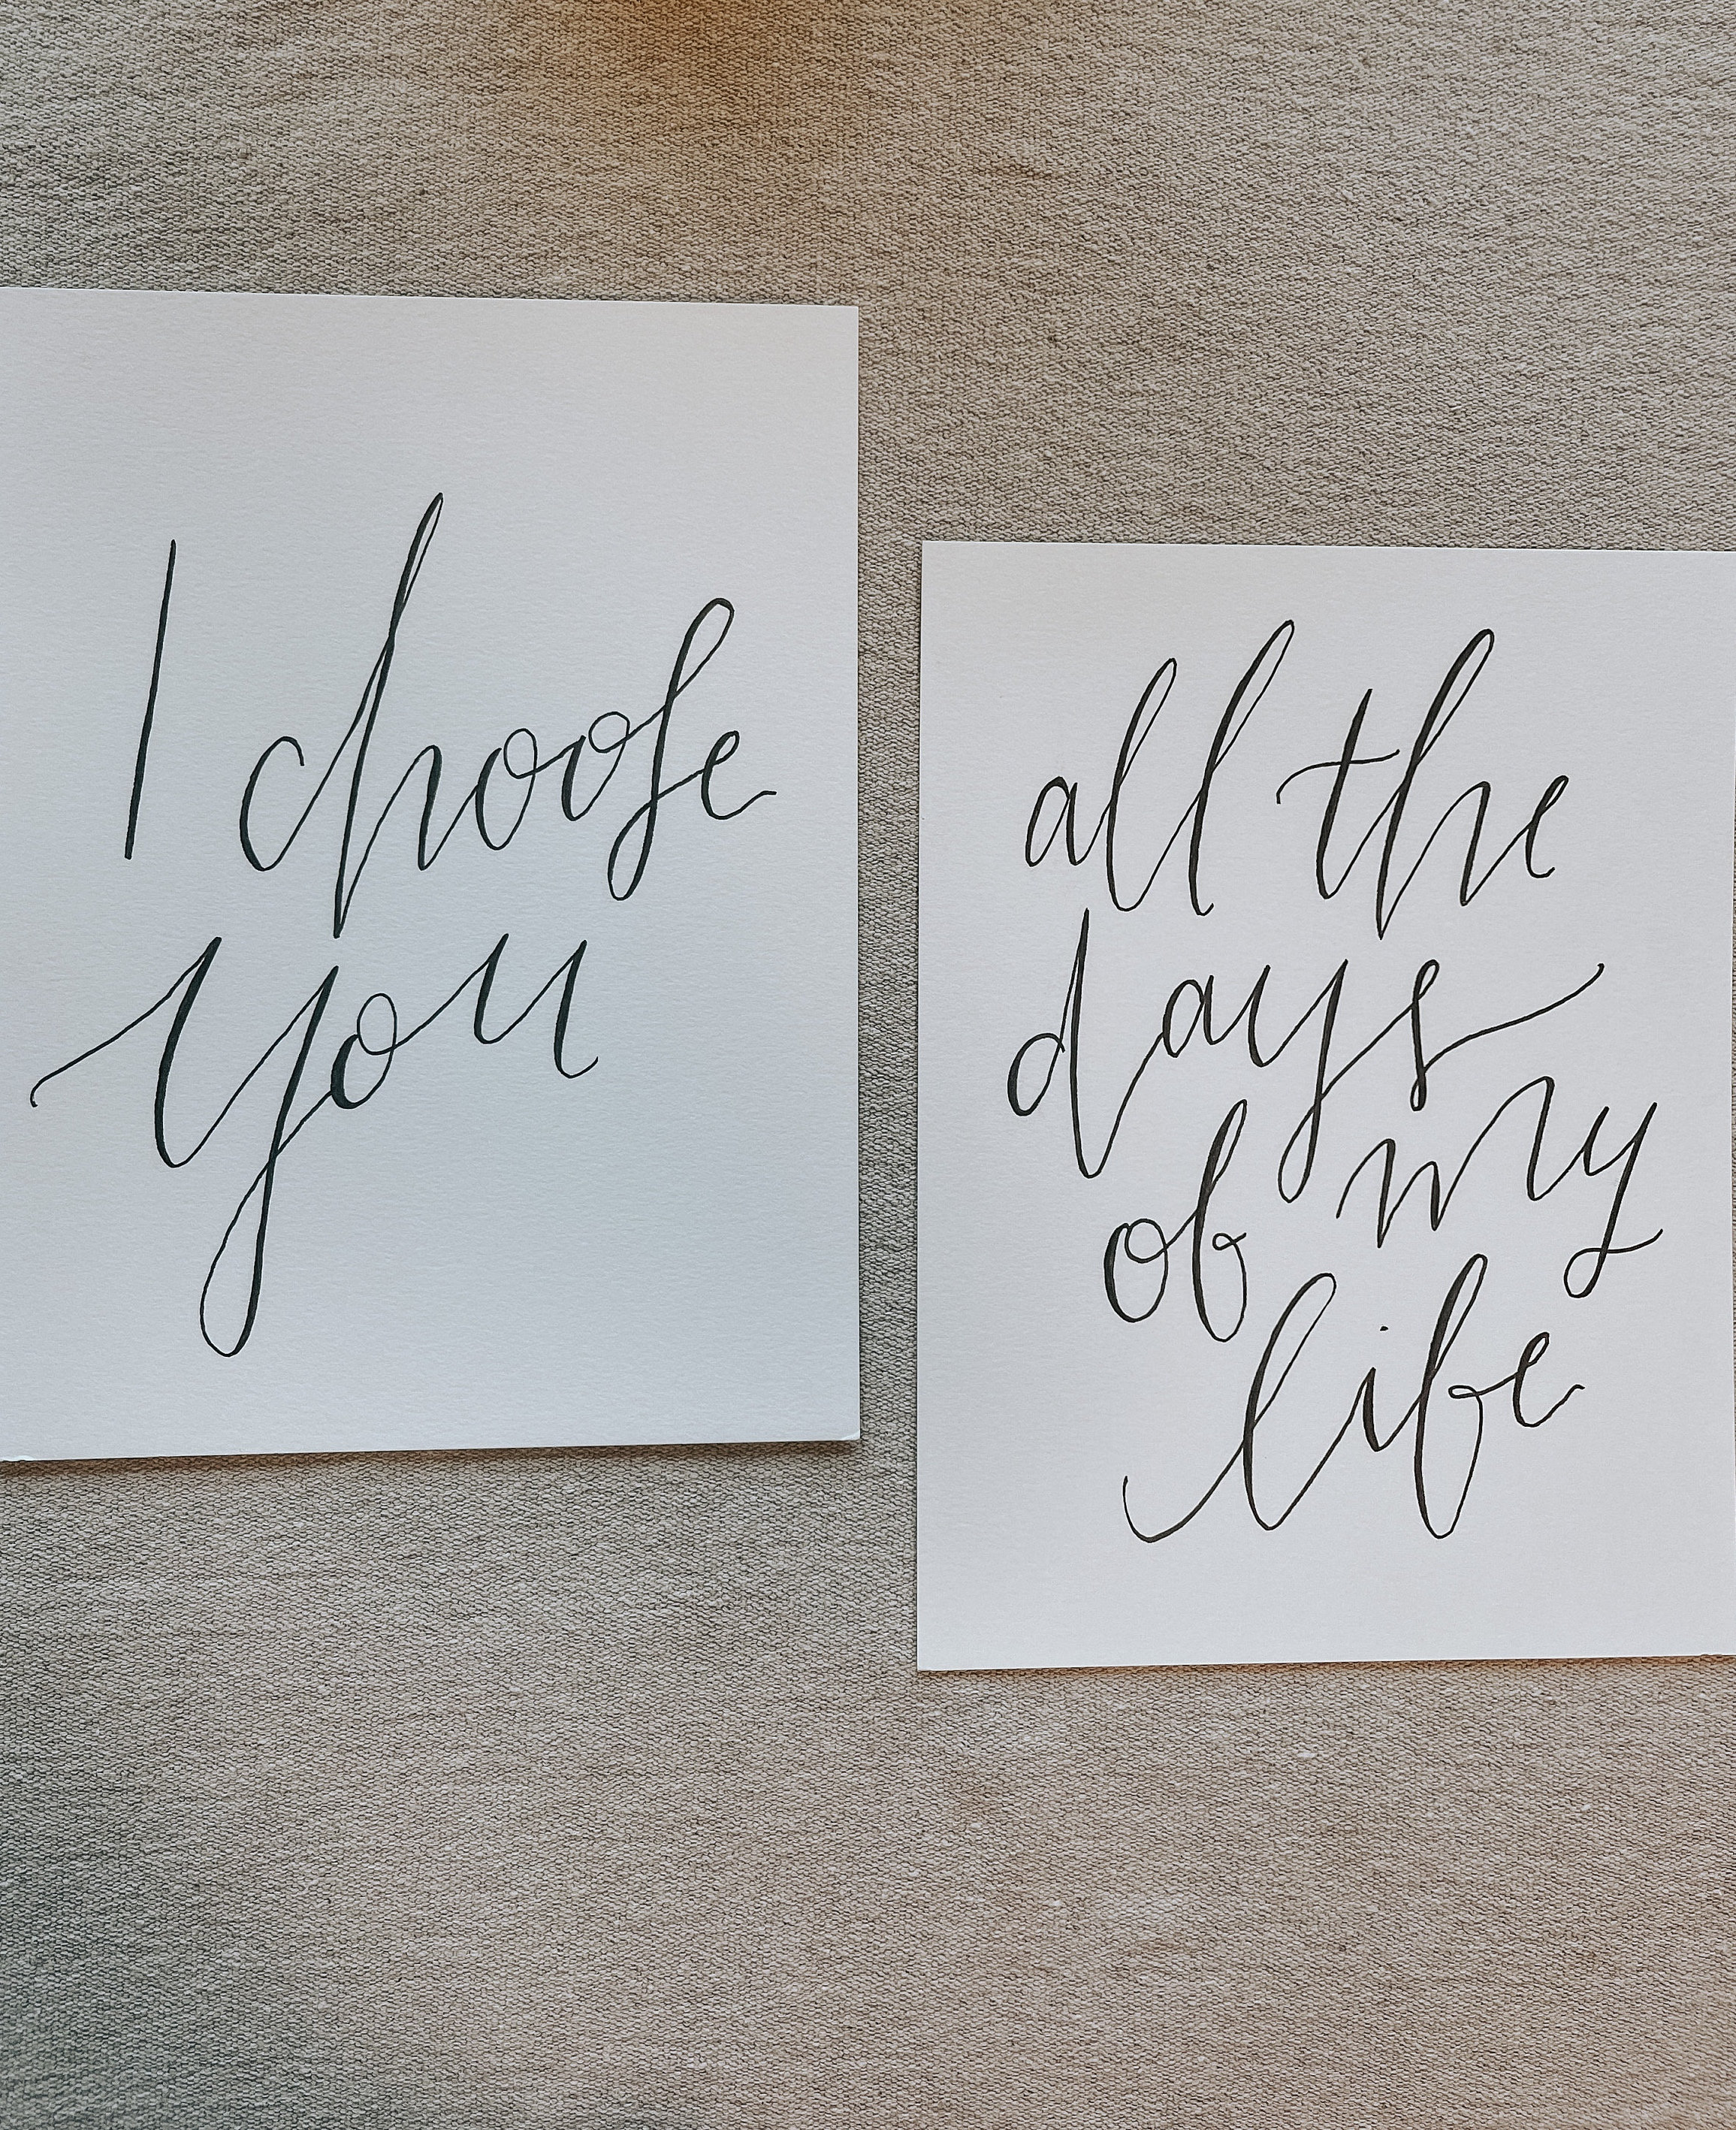 I choose
you
all the
days
of my
life